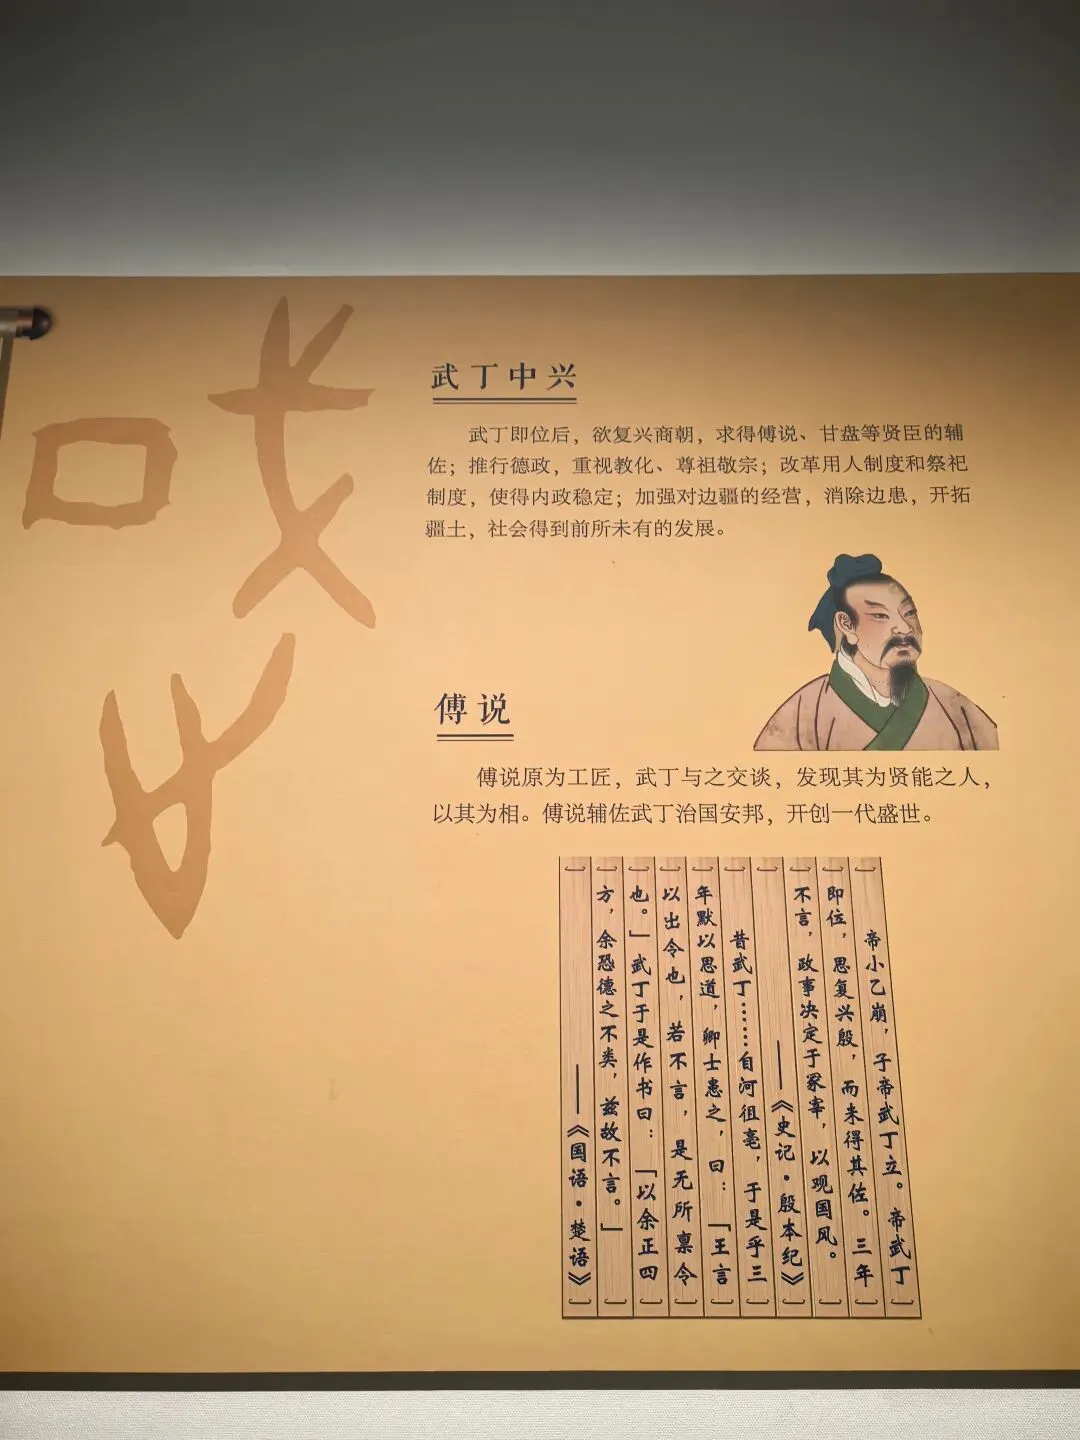 武丁中兴
武丁即位后，欲复兴商朝，求得傅说、甘盘等贤臣的辅
佐；推行德政，重视教化、尊祖敬宗；改革用人制度和祭祀
制度，使得内政稳定；加强对边疆的经营，消除边患，开拓
疆土，社会得到前所未有的发展。
傅说
傅说原为工匠，武丁与之交谈，发现其为贤能之人，
以其为相。傅说辅佐武丁治国安邦，开创一代盛世。
帝小乙崩，子帝武丁立。帝武丁
即位，思复兴殷，而未得其佐。三年
不言，政事决定于冢宰，以观国风。
——《史记·殷本纪》
昔武丁……自河徂亳，于是乎三
年默以思道，卿士患之，曰：「王言
以出令也，若不言，是无所禀令
也。」武丁于是作书曰：「以余正四
方，余恐德之不类，兹故不言。」
——《国语·楚语》